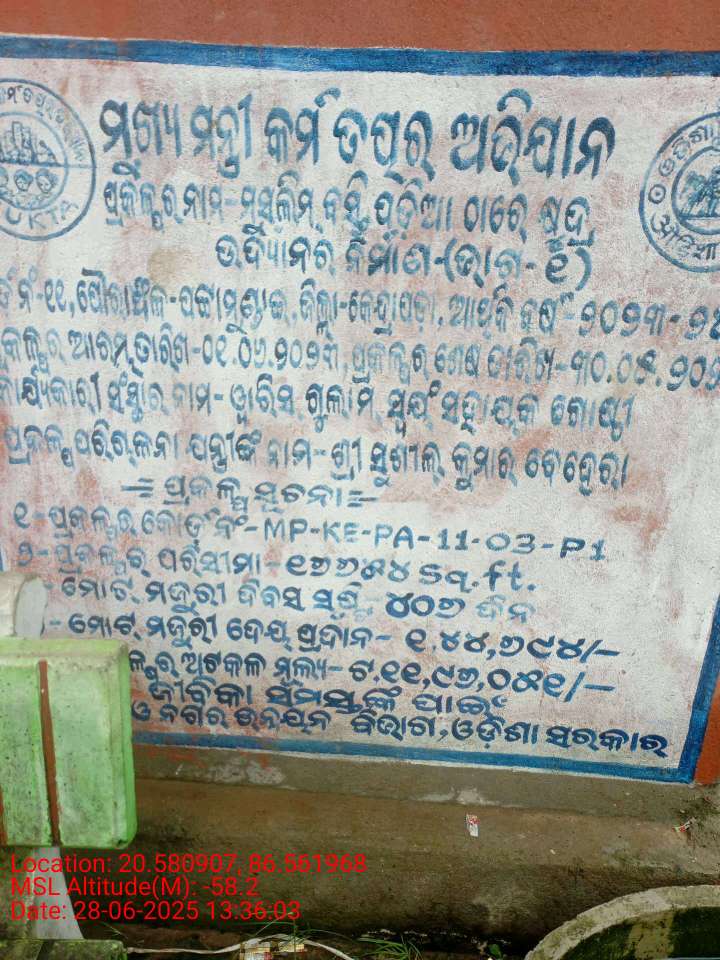 ମୁଖ୍ୟମନ୍ତ୍ରୀ କର୍ମ ତତ୍ପର ଅଭିଯାନ
ପ୍ରକଳ୍ପର ନାମ-ମୁସଲିମ୍ ବସ୍ତି ପଡ଼ିଆ ଠାରେ କ୍ଷୁଦ୍ର
ଉଦ୍ୟାନର ନିର୍ମାଣ-(ଭାଗ-୧)
ନଂ-୧୧, ପୌରାଞ୍ଚଳ-ପଟ୍ଟାମୁଣ୍ଡାଇ, ଜିଲ୍ଲା-କେନ୍ଦ୍ରାପଡ଼ା, ଆର୍ଥିକ ବର୍ଷ-୨୦୨୩-
ଆରମ୍ଭ ତାରିଖ-୦୧.୦୬.୨୦୨୩, ପ୍ରକଳ୍ପର ଶେଷ ତାରିଖ-
କାର୍ଯ୍ୟକାରୀ ସଂସ୍ଥାର ନାମ- ୱାରିସ୍ ଗୁଲାମ୍ ସ୍ୱୟଂ ସହାୟକ ଗୋଷ୍ଠୀ
ପ୍ରକଳ୍ପ ପରିଚାଳନା ଯନ୍ତ୍ରୀଙ୍କ ନାମ- ଶ୍ରୀ ସୁଶୀଲ୍ କୁମାର ବେହେରା
= ପ୍ରକଳ୍ପ ସୂଚନା =
୧-ପ୍ରକଳ୍ପର କୋଡ଼ ନଂ-MP-KE-PA-11-03-P1
୨-ପ୍ରକଳ୍ପର ପରିସୀମା-୧୬୬୫୪ Sq.ft.
ମୋଟ ମଜୁରୀ ଦିବସ ସୃଷ୍ଟି- ୪୦୬ ଦିନ
ମୋଟ ମଜୁରୀ ଦେୟ ପ୍ରଦାନ- ୧,୪୪,୬୯୪/-
ଅଟକଳ ମୂଲ୍ୟ- ଟ.୧୧,୯୬,୦୫୧/-
ଜୀବିକା ସମସ୍ତଙ୍କ ପାଇଁ
ଓ ନଗର ଉନ୍ନୟନ ବିଭାଗ, ଓଡ଼ିଶା ସରକାର
Location: 20.580907, 86.561968
MSL Altitude(M): -58.2
Date: 28-06-2025 13:36:03